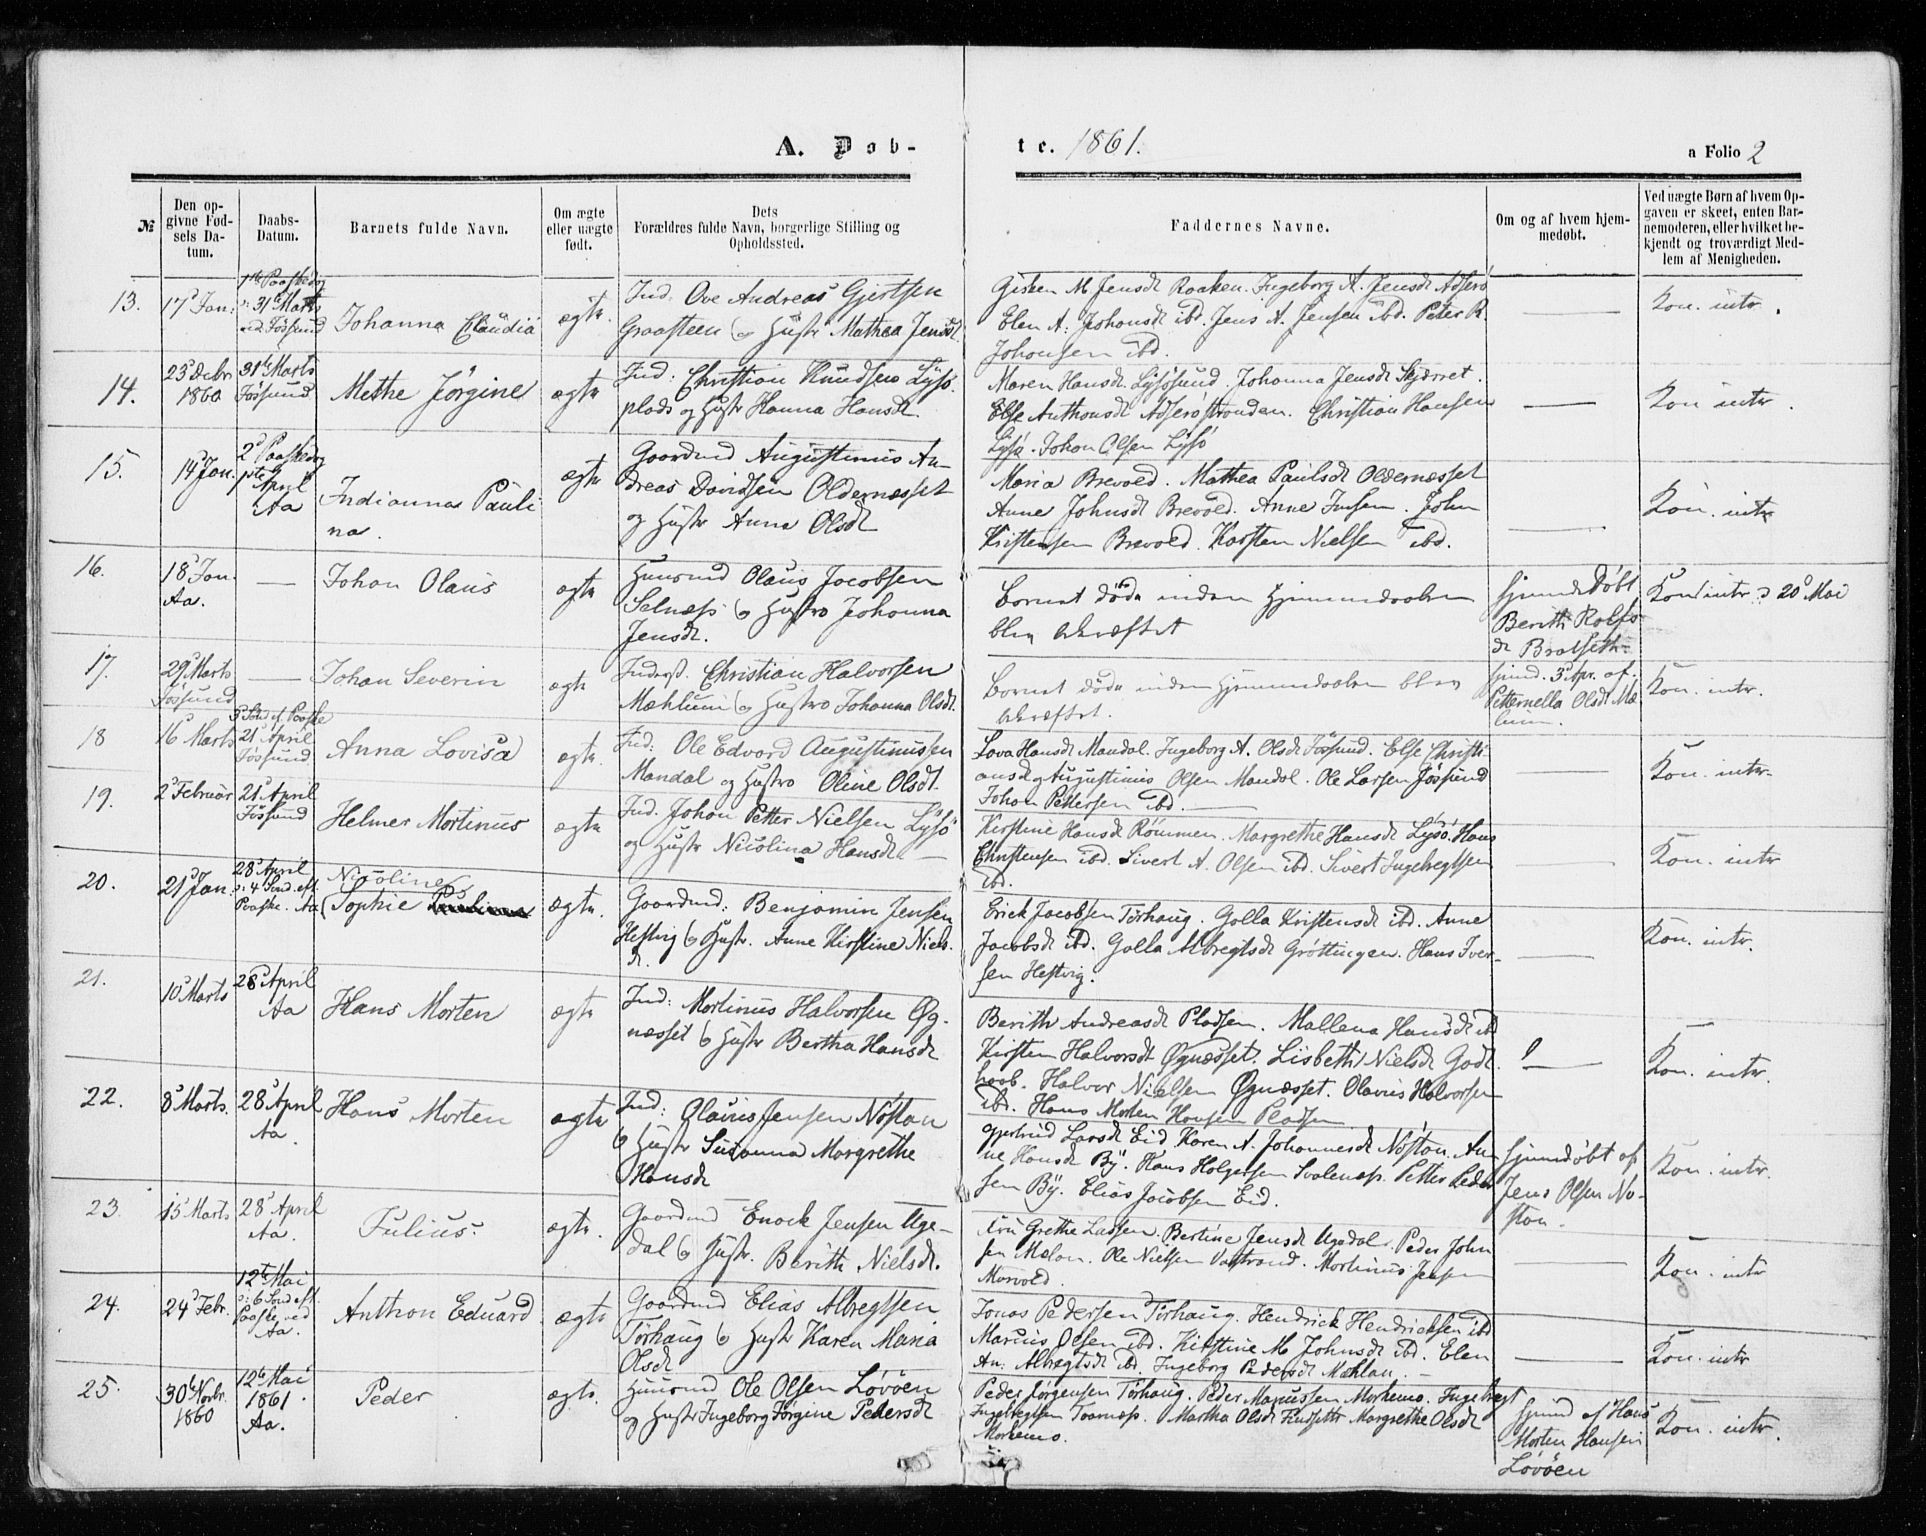 A. Døb-
te. 1861.
a Folio 2
№
Den opgivne Fødsels Datum.
Daabs-Datum.
Barnets fulde Navn.
Om ægte eller uægte født.
Dets Forældres fulde Navn, borgerlige Stilling og Opholdssted.
Faddernes Navne.
Om og af hvem hjemmedøbt.
Ved uægte Børn af hvem Opgaven er skeet, enten Barnemoderen, eller hvilket bekjendt og troværdigt Medlem af Menigheden.
13.
17d Jan:
1ste Paaskedag
31te Marts
ved Jøssund
Johanna Claudia
ægte
Ind: Ove Andreas Gjertsen
Graasteen og Hustr Mathea Jensdt
Gisken M Jensdt Raaken. Ingeborg A. Jensdt Adserø
Elen A. Johansdt ibd. Jens A. Jensen ibd. Peter R.
Johansen ibd.
Kon. intr.
14.
23d Decbr
1860
31te Marts
Jøssund
Methe Jørgine
ægte
Ind: Christian Knudsen Lysø
plads og Hustr Hanna Hansdt.
Maren Hansdt Lysøsund. Johanna Jensdt Skjærret.
Else Anthonsdt Adserøstranden. Christian Hansen
Lysø. Johan Olsen Lysø
Kon. intr.
15.
14d Jan.
2d Paaskedag
1ste April
Aa
Indianna Pauli
na.
ægte
Gaardmd Augustinus An-
dreas Davidsen Oldernæsset
og Hustr Anna Olsdt
Maria Brevold. Mathea Paulsdt Oldernæsset
Anne Johnsdt Brevold. Anne Jensen. John
Kristensen Brevold. Karsten Nielsen ibd.
Kon. intr
16.
18d Jan.
Aa.
Johan Olaus
ægte
Huusmd Olaus Jacobsen
Selnæss og Hustro Johanna
Jensdt.
Barnet døde inden Hjemmedaaben
blev bekræftet
Hjemmedøbt
Berith Rolfs
dt Bratseth.
Kon. intr d 20d Mai
17.
29d Marts
Jøssund
Johan Severin
ægte
Inderst. Christian Halvorsen
Mæhlum og Hustro Johanna Olsdt.
Barnet døde inden Hjemmedaaben blev
bekræftet.
Hjemd. 3d Apr. af
Petternella Olsdt Mæ
lum.
Kon. intr.
18
16d Marts
3 Sønd ef. Paaske
21d April
Jøssund
Anna Lovisa
ægte.
Ind: Ole Edvard Augustinussen
Mandal og Hustro Oline Olsdt.
Lova Hansdt Mandal. Ingeborg A. Olsdt Jøssund. Else Christi
ansdt og Augustinus Olsen Mandal. Ole Larsen Jøssund
Johan Pettersen ibd.
Kon. intr.
19.
2d Februar
21d April
Jøssund
Helmer Mortinus
ægte
Ind. Johan Petter Nielsen Lysø
og Hustr Nicolina Hansdt.
Kirstine Hansdt Rømmen. Margrethe Hansdt Lysø. Hans
Christensen ibd. Sivert A. Olsen ibd. Sivert Ingebregtsen
ibd.
Kon. intr
20.
21d Jan.
28d April
4 Sønd. eft.
Paaske. Aa
Nicoline
Sophie
ægte.
Gaardmd: Benjamin Jensen
Hestvig og Hustr. Anne Kirstine Niels
dt.
Erick Jacobsen Tørhaug. Golla Kristensdt ibd. Anne
Jacobsdt ibd. Golla Albregtsdt Grøttingen. Hans Iver-
sen Hestvig.
Kon. intr.
21.
10d Marts
28d April
Aa
Hans Morten
ægte
Ind: Mortinus Halvorsen Øg-
næsset og Hustr Bertha Hansdt
Berith Andreasdt Pladsen. Mallena Hansdt ibd
Kirsten Halvorsdt Øgnæsset. Lisbeth Nielsdt Godt
haab. Halvor Nielsen Øgnæsset. Olavus Halvorsen
ibd. Hans Morten Hansen Pladsen
Kon. intr.
22.
8d Marts.
28d April
Aa.
Hans Morten
ægte
Ind: Olaus Jensen Nøstan
og Hustr Susanna Margrethe
Hansdt
Gjertrud Larsdt Eid Karen A. Johannesdt Nøstan. An
ne Hansdt By. Hans Holgersen Svalenæss. Petter Peder
sen By. Elias Jacobsen Eid.
Hjemdøbt af
Jens Olsen Nø-
stan.
Kon. intr.
23.
15d Marts
28d April
Aa.
Julius.
ægte.
Gaardmd Enock Jensen Uge-
dal og Hustr. Berith Nielsdt.
Grethe Larsen. Bertine Jensdt Ugedal. Peder John
sen Mælan. Ole Nielsen Vastrand. Mortinus Jensen
Morvold.
Kon. intr
24.
24d Febr.
12te Mai
6 Sønd eft.
Paaske ved
Aa.
Anthon Eduard
ægte
Gaardmd Elias Albregtsen
Tørhaug og Hustr Karen Maria
Olsdt
Jonas Pedersen Tørhaug. Hendrick Hendricksen ibd
Marcus Olsen ibd. Kirstine M Johnsdt ibd. Elen
An: Albregtsdt ibd. Ingeborg Pedersdt Mæhlan.
Kon. intr
25.
30te Novbr.
1860
12te Mai
1861
Aa.
Peder
ægte.
Huusmd Ole Olsen Løvøen
og Hustr Ingeborg Jørgine Pedersdt
Peder Jørgensen Tørhaug. Peder Mariussen Morkemo. Ingebregt
Ingebregtsen Taarnæss. Martha Olsdt Margrethe Olsdt
Morkemo.
Hjemd af Hans
Morten Hansen
Løvøen
Kon. intr.